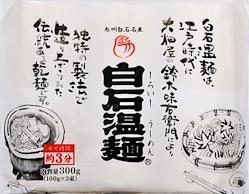 奥州白石名産
白石温麺は、
江戸時代に
大畑屋の
鈴木味右衛門より
独特の製法で
生み
伝統ある乾麺です。
しろいしうーめん
白石温麺
ゆで時間
約3分
内容量300g
(100g×3束)